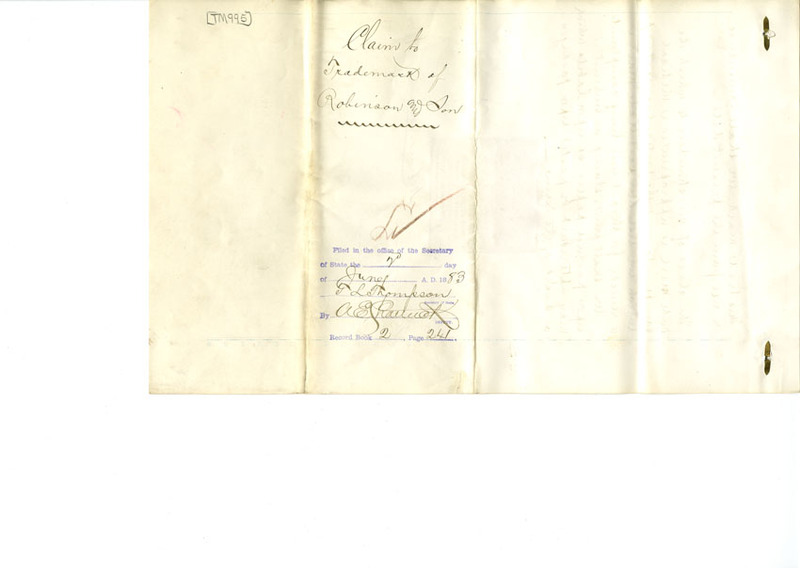 [TM995]
Claim to
Trademark of
Robinson & Son
Filed in the office of the Secretary
of State the 2d day
of June A.D. 1883
T L Thompson
By A E
Record Book 2, Page 241.